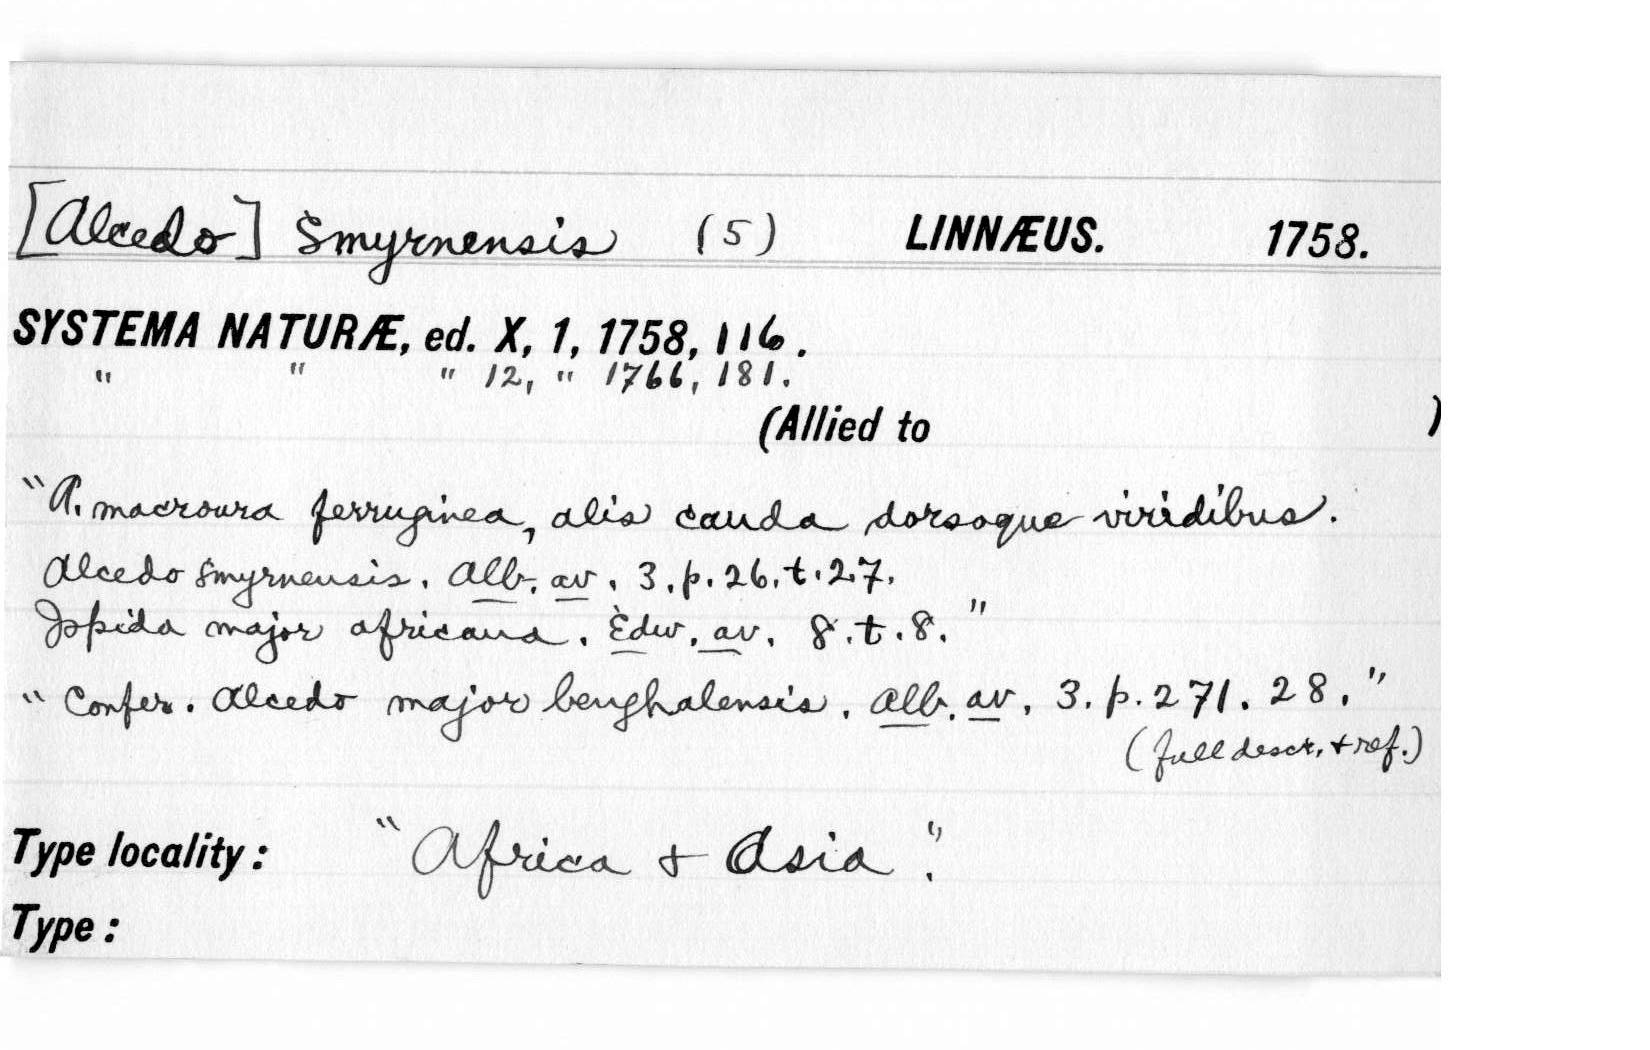 [Alcedo] Smyrnensis (5) LINNÆUS. 1758.
SYSTEMA NATURÆ, ed. X, 1, 1758, 116.
" " " 12, " 1766, 181.
(Allied to )
"A. macroura ferruginea, alis cauda dorsoque viridibus.
Alcedo Smyrnensis. Alb. av. 3. p. 26. t. 27.
Ispida major africana. Edw. av. 8. t. 8."
"Confer. Alcedo major benghalensis. Alb. av. 3. p. 271. 28."
(full descr. + ref.)
Type locality: "Africa + Asia".
Type: